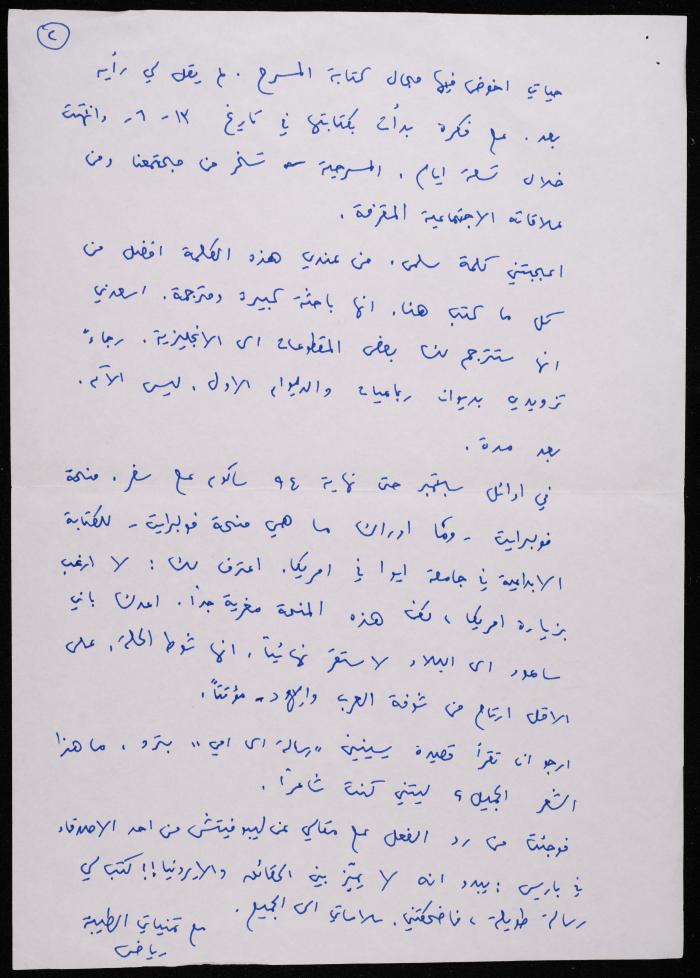 ٢
حياتي اخوض فيها مجال كتابة المسرح. لم يقل لي رأيه
بعد. مع فكرة بدأت بكتابتها في تاريخ ١٣-٦- وانتهت
خلال تسعة ايام. المسرحية تسخر من مجتمعنا ومن
علاقاته الاجتماعية المقرفة.
اعجبتني كلمة سلمى. من عندي هذه الكلمة افضل من
كل ما كتب هنا. انها باحثة كبيرة ومترجمة. اسعدني
انها ستترجم لك بعض المقطوعات الى الانجليزية. رجاءً
تزويدي بديوان رباعيات والديوان الاول. ليس الآن.
بعد مدة.
في اوائل سبتمبر حتى نهاية ٩٤ سأكون على سفر. منحة
فولبرايت - وما ادراك ما هي منحة فولبرايت - للكتابة
الابداعية في جامعة ايوا في امريكا. اعترف لك: لا ارغب
بزيارة امريكا، لكن هذه المنحة مغرية جداً. اعدك باني
ساعود الى البلاد لاستقر نهائياً. انها شوط الحلة. على
الاقل ارتاح من شوفة العرب واليهود - مؤقتاً.
ارجو ان تقرأ قصيدة يسينين "رسالة الى امي" بتروٍ. ما هذا
الشعر الجميل؟ ليتني كنت شاعراً.
فوجئت من رد الفعل على مقالي عن ليبوفيتش من احد الاصدقاء
في باريس: يبدو انه لا يميّز بين الحقائق والايرونيا!! كتب لي
رسالة طويلة، فاضحكتني. سلاماتي الى الجميع.
مع تمنياتي الطيبة
رياض